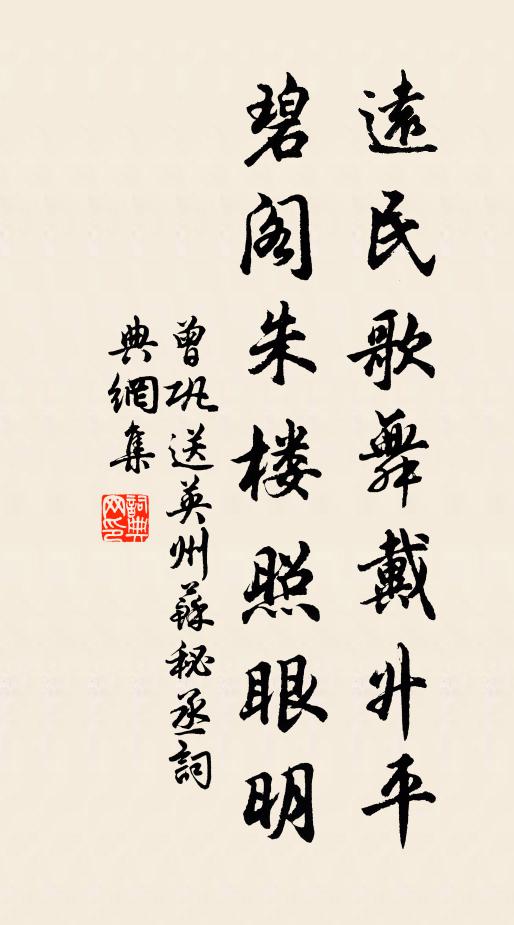 遠民歌舞戴升平
碧阁朱楼照眼明
曾巩送英州蘇秘丞詞
典網集
詞典
网印